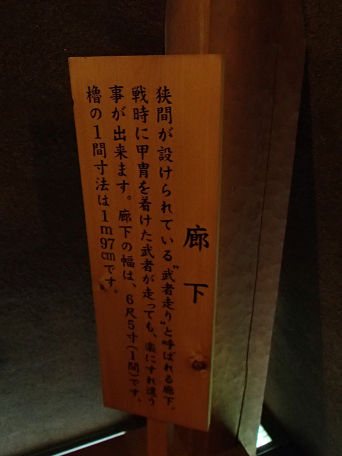 廊下
狭間が設けられている〝武者走り〟と呼ばれる廊下。
戦時に甲冑を着けた武者が走っても、楽にすれ違う
事が出来ます。廊下の幅は、6尺5寸(1間)です。
櫓の1間寸法は1m97㎝です。